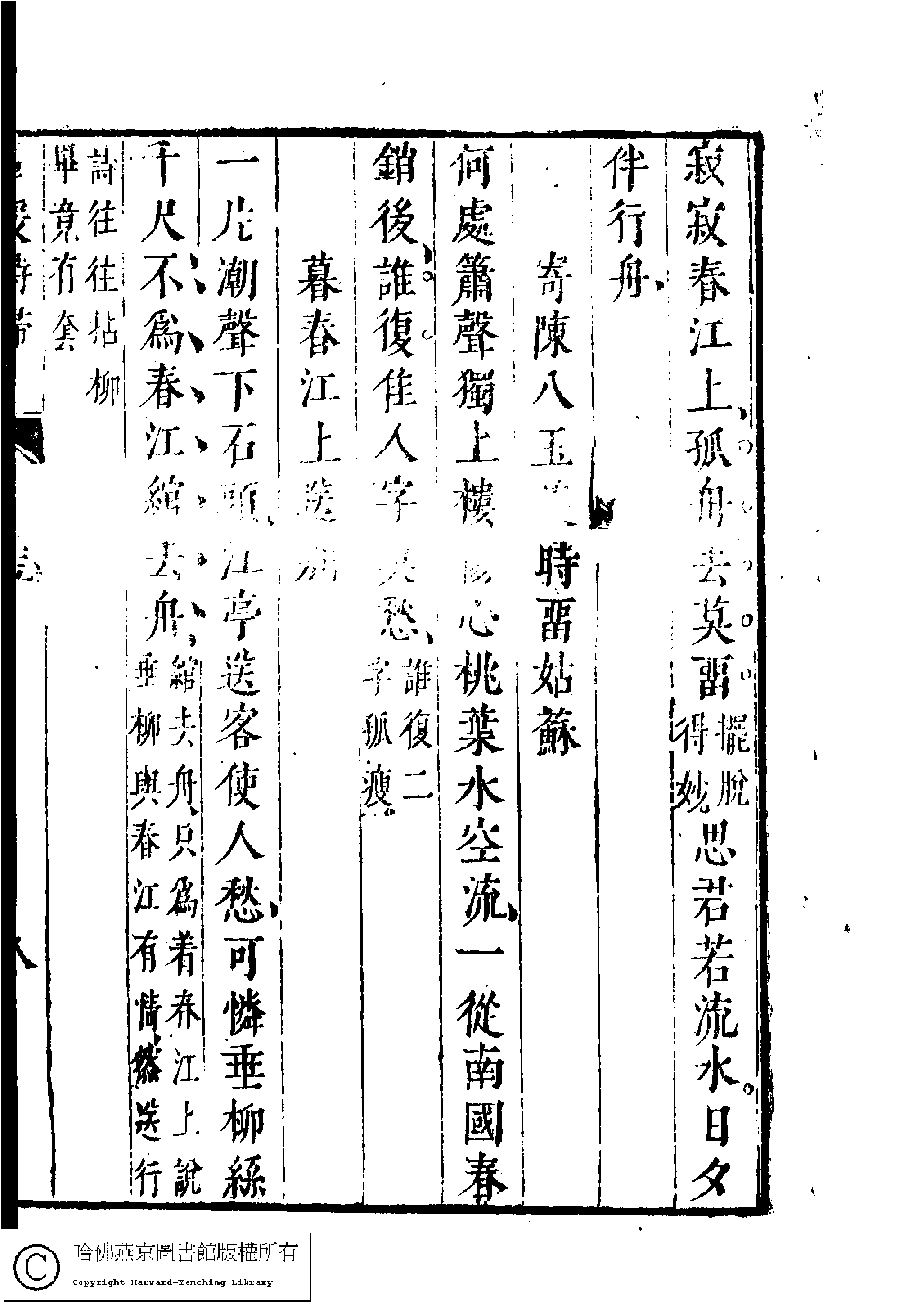 寂寂春江上孤舟去莫畱擺脫得妙思君若流水日夕
伴行舟
寄陳八玉 時畱姑蘇
何處簫聲獨上樓 心桃葉水空流一從南國春
銷後誰復佳人字 愁誰復二字孤瘦
暮春江上送
一片潮聲下石頭江亭送客使人愁可憐垂柳絲
千尺不爲春江綰去舟綰去舟只爲着春江上說垂柳與春江有情然送行
詩往往拈柳畢竟有套
哈佛燕京圖書館版權所有
Copyright Harvard-Yenching Library